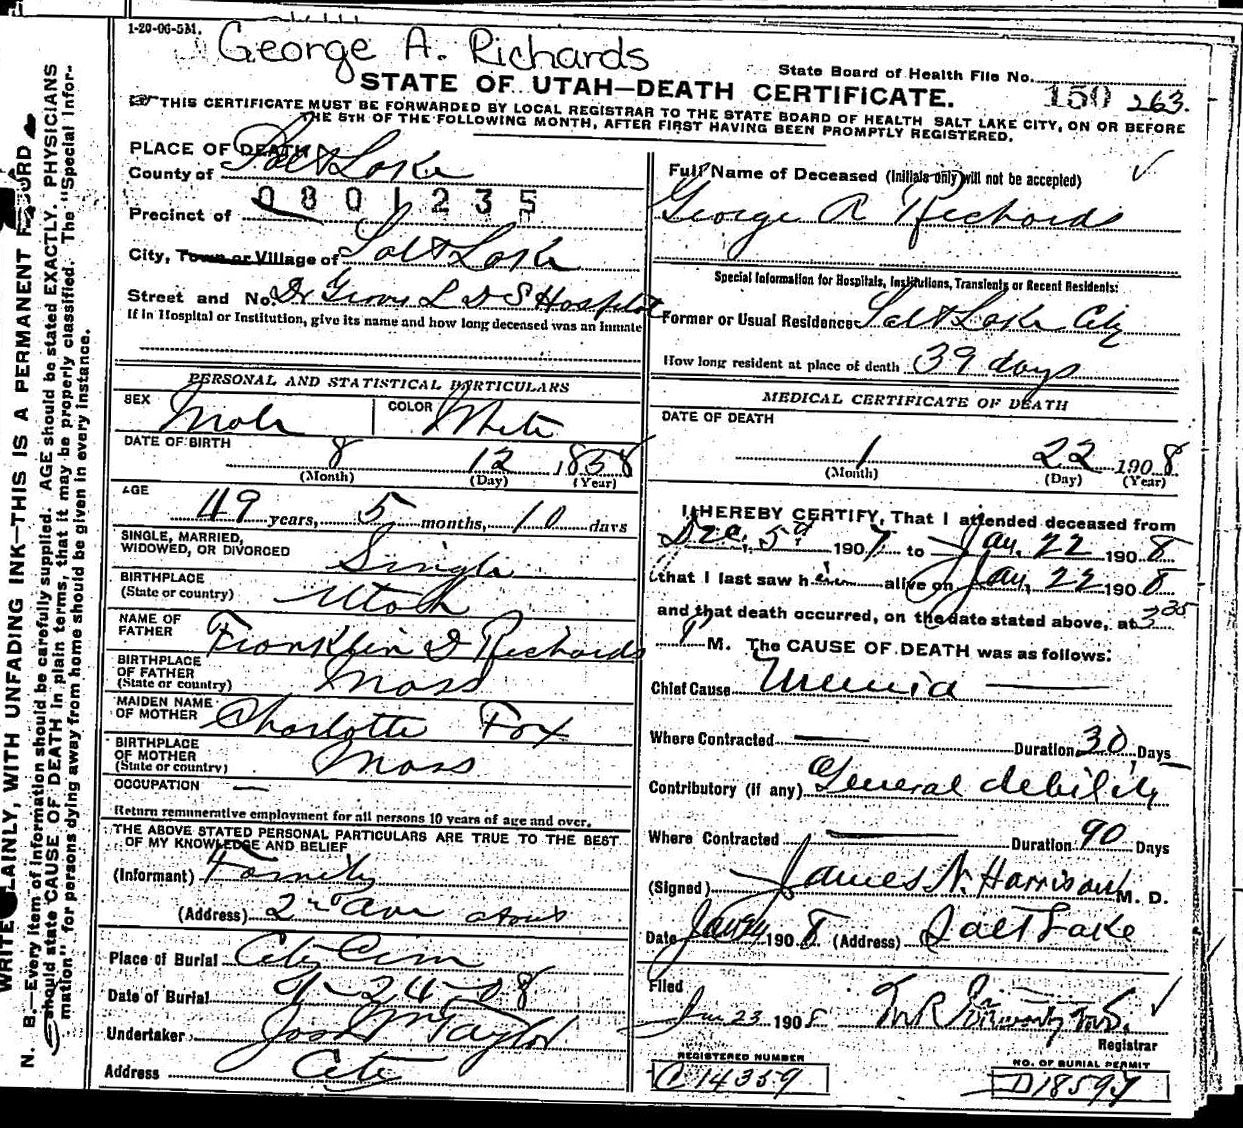 1-20-06-5M.
George A. Richards
State Board of Health File No. 150 263.
STATE OF UTAH—DEATH CERTIFICATE.
THIS CERTIFICATE MUST BE FORWARDED BY LOCAL REGISTRAR TO THE STATE BOARD OF HEALTH SALT LAKE CITY, ON OR BEFORE
THE 5TH OF THE FOLLOWING MONTH, AFTER FIRST HAVING BEEN PROMPTLY REGISTERED.
WRITE PLAINLY, WITH UNFADING INK—THIS IS A PERMANENT RECORD
N. B.—Every item of information should be carefully supplied. AGE should be stated EXACTLY. PHYSICIANS
should state CAUSE OF DEATH in plain terms, that it may be properly classified. The "Special Infor-
mation" for persons dying away from home should be given in every instance.
PLACE OF DEATH
County of Salt Lake
0801235
Precinct of
City, Town or Village of Salt Lake
Street and No. Dr Groves L D S Hospital
If in Hospital or Institution, give its name and how long deceased was an inmate
PERSONAL AND STATISTICAL PARTICULARS
SEX Male COLOR White
DATE OF BIRTH
8 12 1858
(Month) (Day) (Year)
AGE
49 years, 5 months, 10 days
SINGLE, MARRIED,
WIDOWED, OR DIVORCED Single
BIRTHPLACE
(State or country) Utah
NAME OF
FATHER Franklin D Richards
BIRTHPLACE
OF FATHER
(State or country) Mass
MAIDEN NAME
OF MOTHER Charlotte Fox
BIRTHPLACE
OF MOTHER
(State or country) Mass
OCCUPATION —
Return remunerative employment for all persons 10 years of age and over.
THE ABOVE STATED PERSONAL PARTICULARS ARE TRUE TO THE BEST
OF MY KNOWLEDGE AND BELIEF
(Informant) Family
(Address) 2nd Ave
Place of Burial City Cem
Date of Burial 1-24-08
Undertaker Jos Wm Taylor
Address City
Full Name of Deceased (Initials only will not be accepted)
George A Richards
Special Information for Hospitals, Institutions, Transients or Recent Residents:
Former or Usual Residence Salt Lake City
How long resident at place of death 39 days
MEDICAL CERTIFICATE OF DEATH
DATE OF DEATH
1 22 1908
(Month) (Day) (Year)
I HEREBY CERTIFY, That I attended deceased from
Dec. 5th 1907 to Jan. 22 1908
that I last saw him alive on Jan. 22 1908
and that death occurred, on the date stated above, at 3 35
P M. The CAUSE OF DEATH was as follows:
Chief Cause Uremia —
Where Contracted — Duration 30 Days
Contributory (if any) General debility
Where Contracted — Duration 90 Days
(Signed) James N. Harrison M. D.
Date Jan 1908 (Address) Salt Lake
Filed
Jan 23 1908
Registrar
REGISTERED NUMBER
C 14359
NO. OF BURIAL PERMIT
D18594